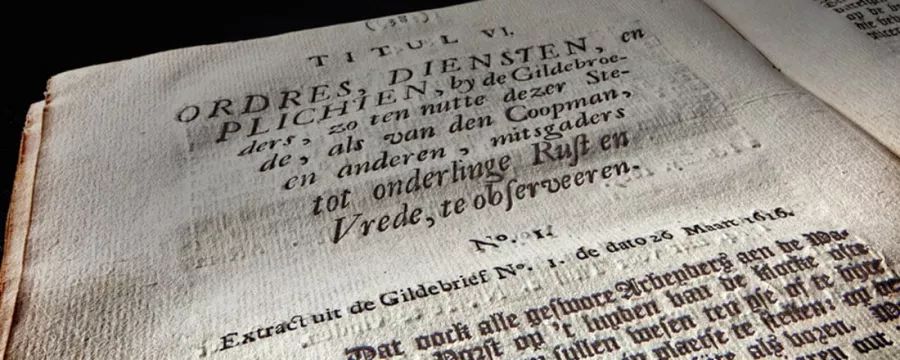 (38)
TITUL VI.
ORDRES, DIENSTEN, en
PLICHTEN, by de Gildebroe-
ders, zo ten nutte dezer Ste-
de, als van den Coopman,
en anderen, mitsgaders
tot onderlinge Ruſt en
Vrede, te obſerveeren.
No. I.
Extract uit de Gildebrief No. 1. de dato 26 Maart 1616.
Dat oock alle geſwoore Arbenders aen de
op 't luyden van de klocke
ſullen weſen
in plaetſe te ſtaten: op
als vozen.